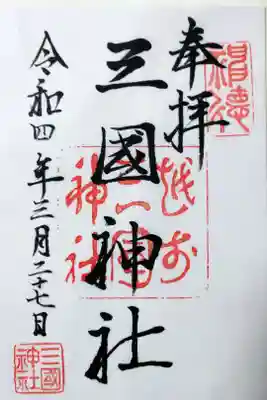 奉拝
越前
三國
神社
三國神社
令和四年三月二十七日
三國
神社